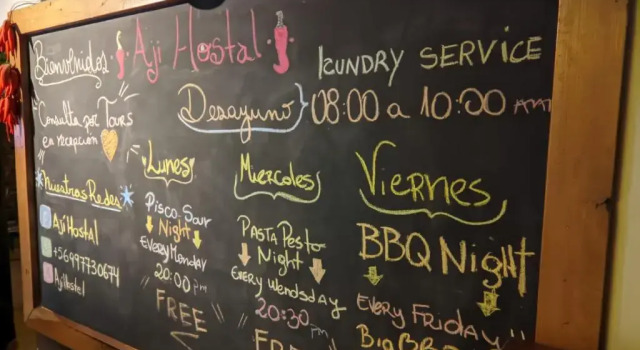 Bienvenidos Aji Hostal
LCUNDRY SERVICE
Consulta por Tours
en recepcion
Desayuno } 08:00 a 10:00 AM
Nuestras Redes
AjiHostal
+56997730674
AjiHostel
Lunes
Pisco-Sour
Night
Every Monday
20:00 pm
FREE
Miercoles
PASTA Pesto
Night
Every Wendsday
20:30 pm
FREE
Viernes
BBQ Night
EVERY FRIDAY
Big BBQ